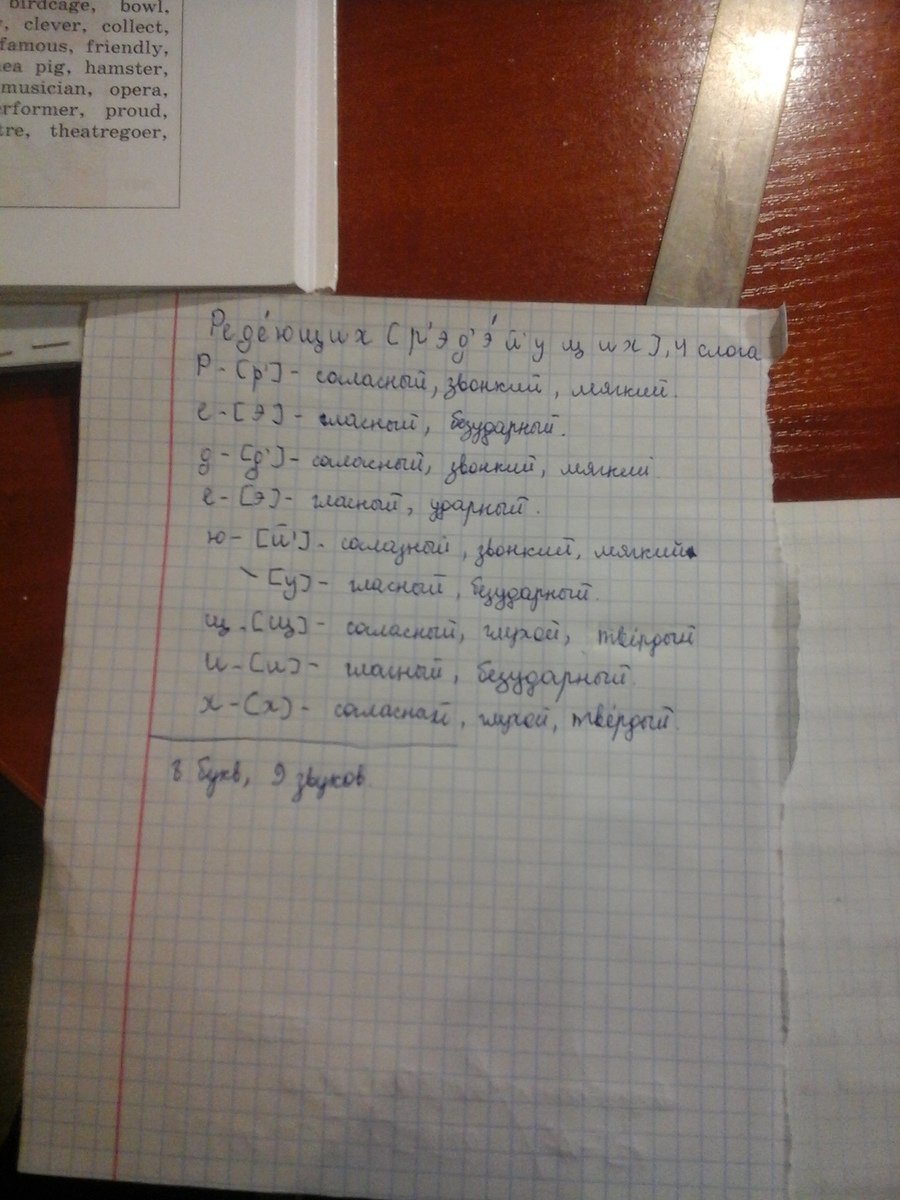 birdcage, bowl,
, clever, collect,
famous, friendly,
ea pig, hamster,
musician, opera,
rformer, proud,
tre, theatregoer,
Реде́ющих [р'эд'э́й'ущих], 4 слога
Р - [р'] - согласный, звонкий, мягкий.
е - [э] - гласный, безударный.
д - [д'] - согласный, звонкий, мягкий
е - [э] - гласный, ударный.
ю - [й'] - согласный, звонкий, мягкий
\ [у] - гласный, безударный.
щ - [щ] - согласный, глухой, твёрдый
и - [и] - гласный, безударный
х - [х] - согласный, глухой, твёрдый.
8 букв, 9 звуков.